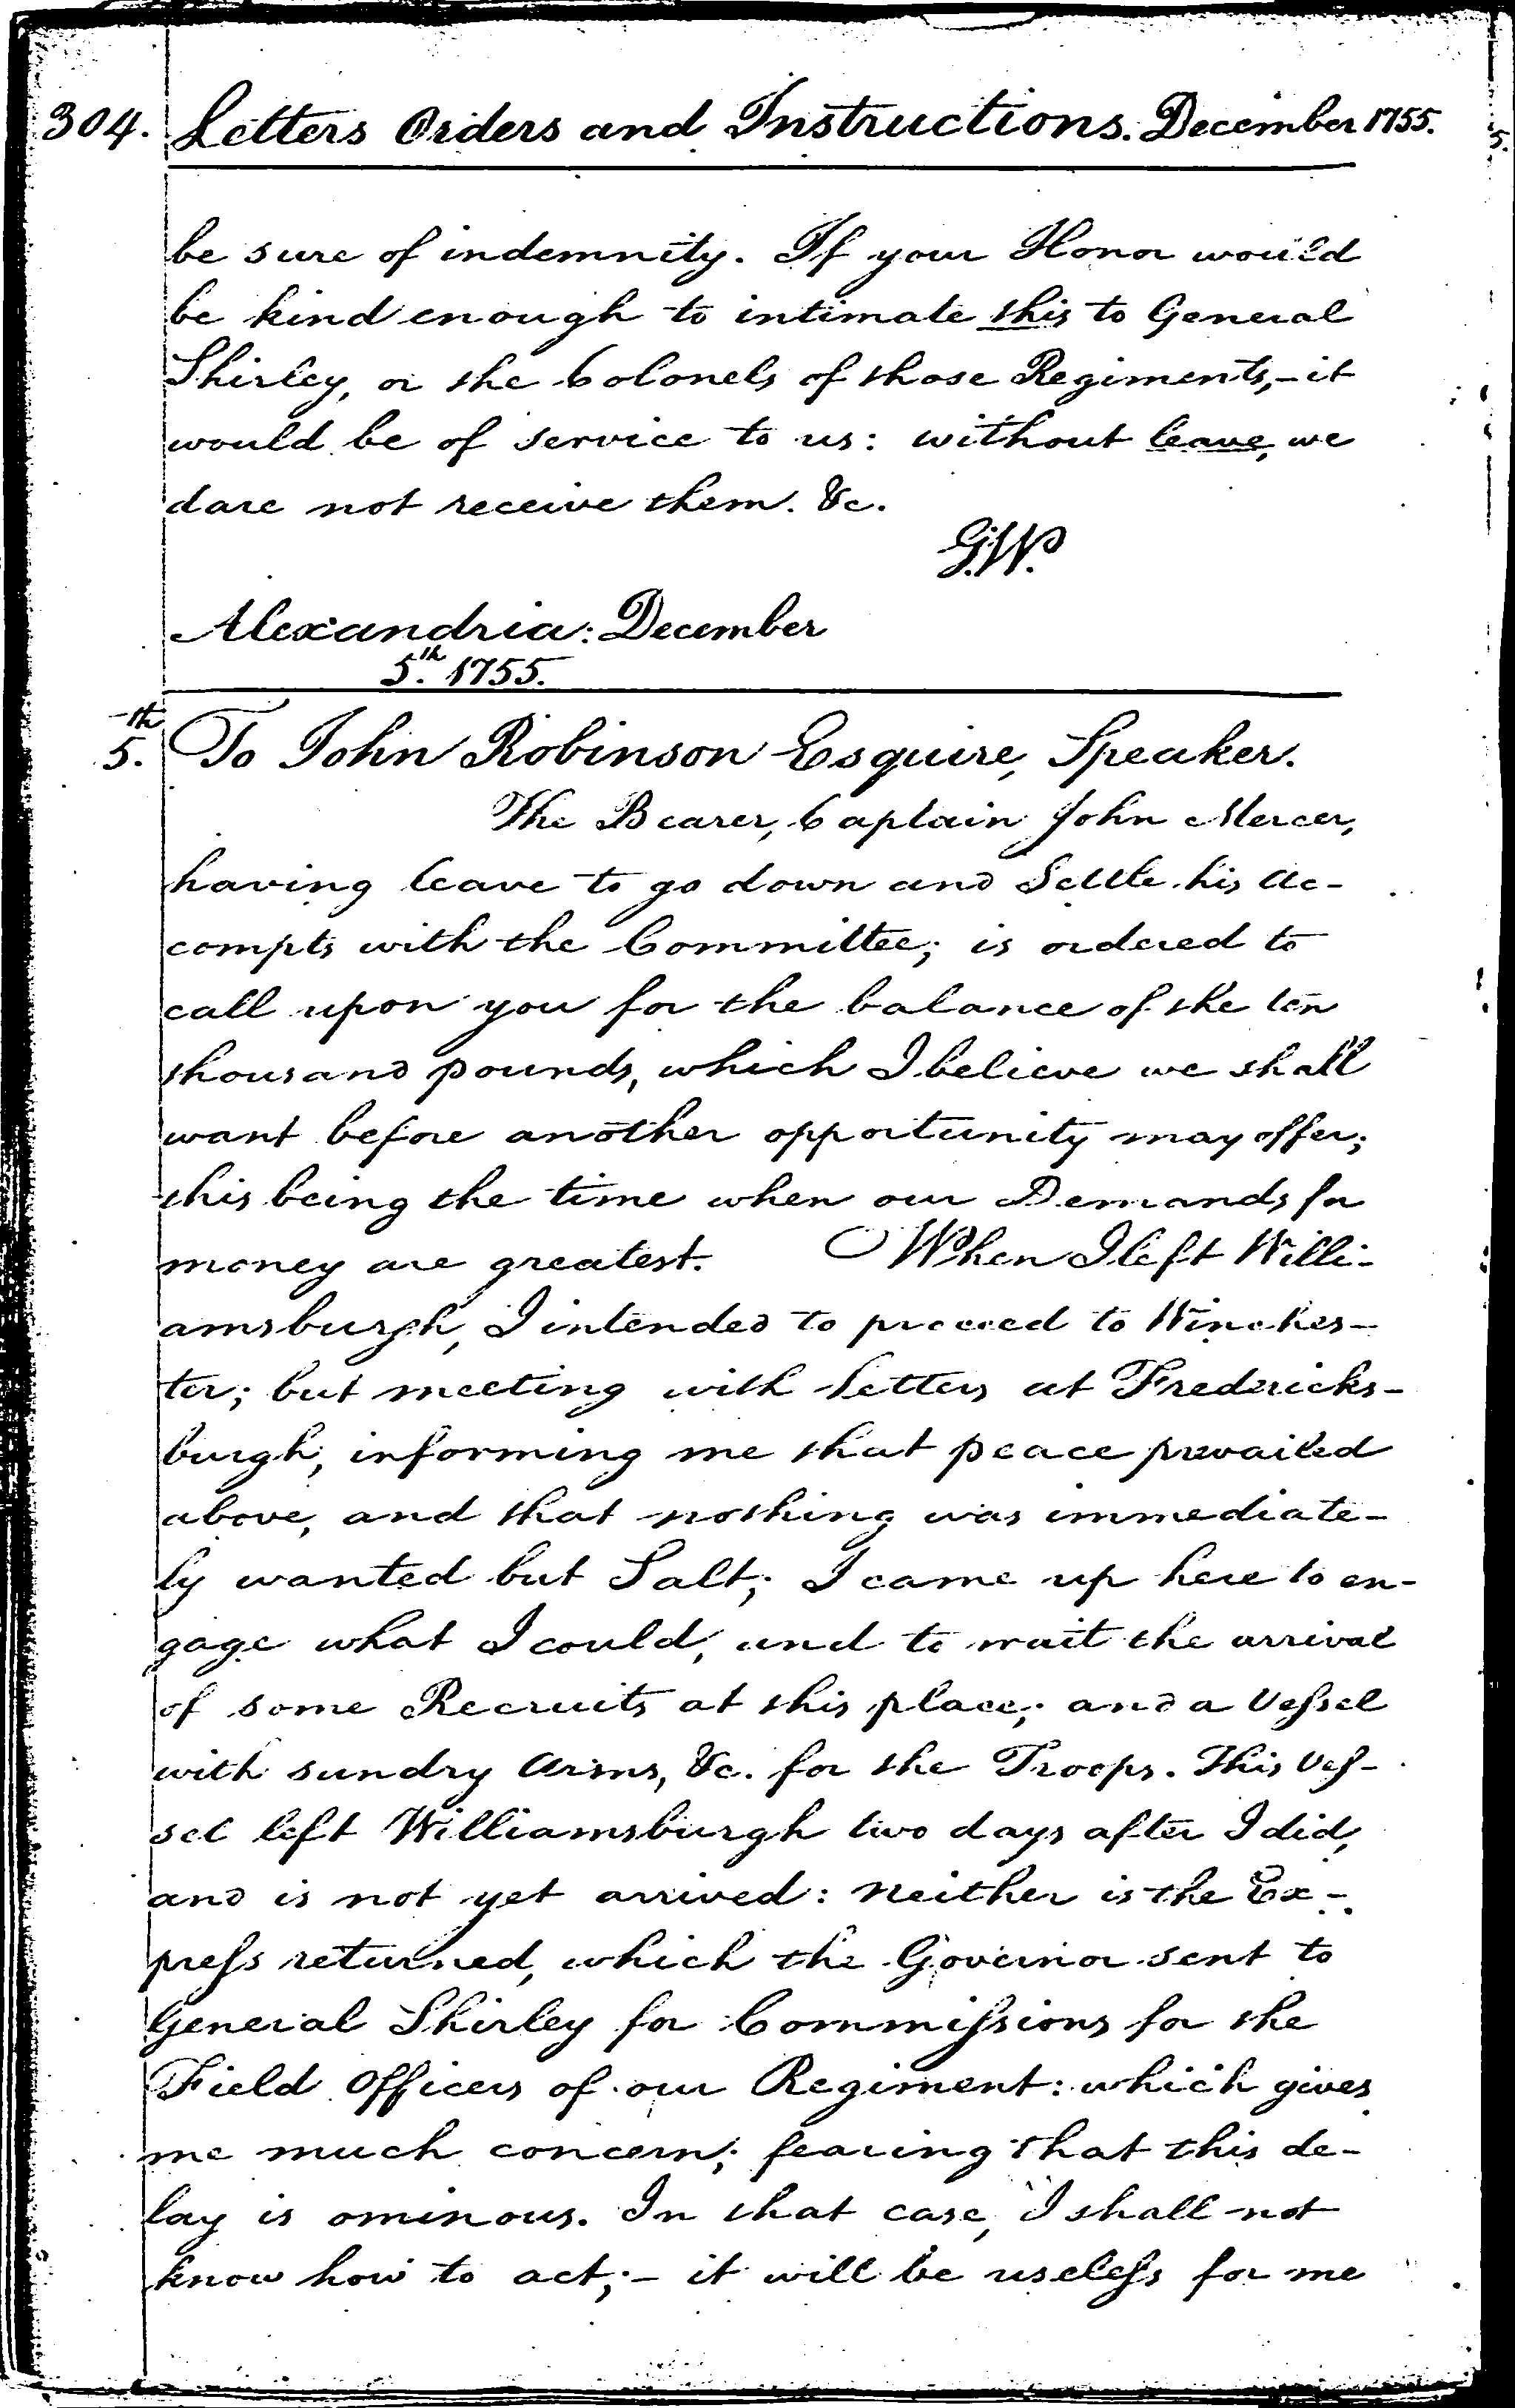 304. Letters Orders and Instructions. December 1755.
be sure of indemnity. If your Honor would
be kind enough to intimate this to General
Shirley, or the Colonels of those Regiments,- it
would be of service to us: without leave, we
dare not receive them. &c.
G.W.
Alexandria: December
5th. 1755.
5th. To John Robinson Esquire, Speaker.
The Bearer, Captain John Mercer,
having leave to go down and Settle his Ac-
compts with the Committee; is ordered to
call upon you for the balance of the ten
thousand pounds, which I believe we shall
want before another opportunity may offer;
this being the time when our Demands for
money are greatest. When I left Willi-
amsburgh, I intended to proceed to Winches-
ter; but meeting with Letters at Fredericks-
burgh, informing me that peace prevailed
above, and that nothing was immediate-
ly wanted but Salt; I came up here to en-
gage what I could, and to wait the arrival
of some Recruits at this place; and a Vessel
with sundry Arms, &c. for the Troops. This Ves-
sel left Williamsburgh two days after I did,
and is not yet arrived: neither is the Ex-
press returned, which the Governor sent to
General Shirley for Commissions for the
Field Officers of our Regiment: which gives
me much concern; fearing that this de-
lay is ominous. In that case, I shall not
know how to act;- it will be useless for me